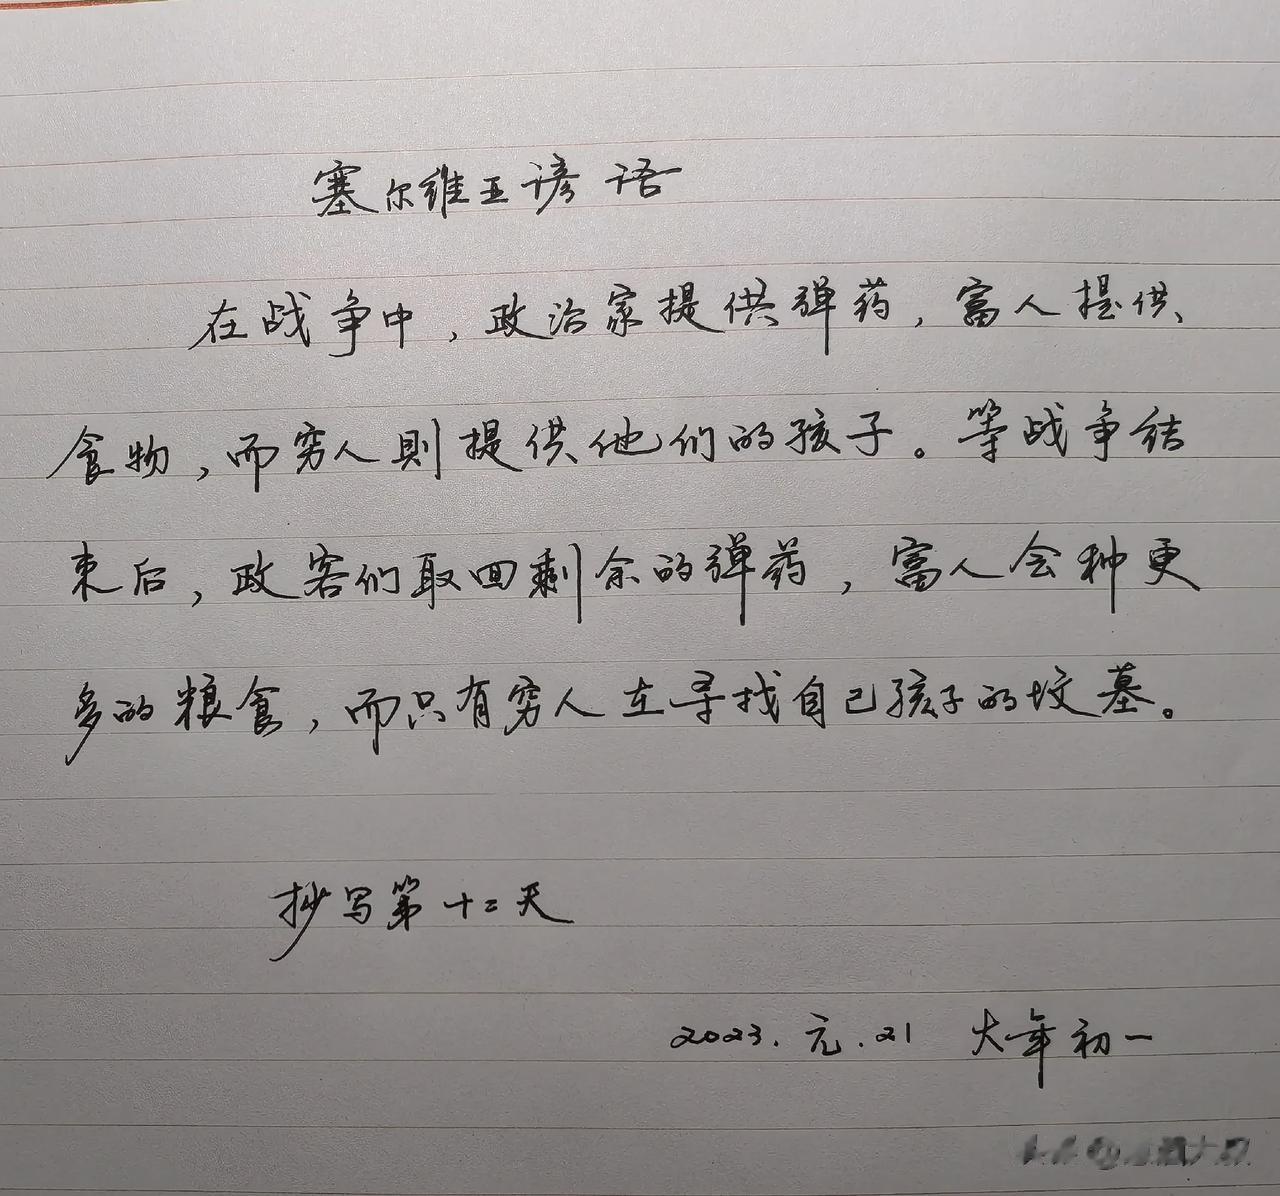 塞尔维亚谚语
在战争中，政治家提供弹药，富人提供
食物，而穷人則提供他们的孩子。等战争结
束后，政客们取回剩余的弹药，富人会种更
多的粮食，而只有穷人在寻找自己孩子的坟墓。
抄写第十二天
2023.元.21 大年初一